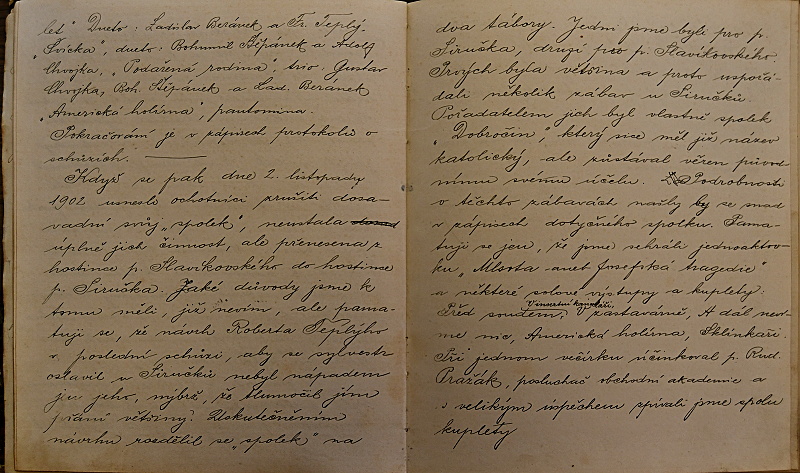 let" Dueto: Ladislav Beránek a Fr. Teplý.
„Svícka", dueto: Bohumil Štěpánek a Adolf
Chvojka, „Podařená rodina", trio: Gustav
Chvojka, Boh. Štěpánek a Lad. Beranek
„Americká holírna", pantomina.
Pokračování je v zápisech protokolu o
schůzích.
Když se pak dne 2. listopadu
1902 usnesli ochotníci zrušiti dosa-
vadní svůj „spolek", neustala
úplně jich činnost, ale přenesena z
hostince p. Slavíkovského do hostince
p. Siručka. Jaké důvody jsme k
tomu měli, již nevím, ale pama-
tuji se, že návrh Roberta Teplýho
v poslední schůzi, aby se sylvestr
oslavil u Siručků nebyl nápadem
jen jeho, nýbrž, že tlumočil jím
přání většiny. Uskutečněním
návrhu rozdělil se „spolek" na
dva tábory. Jedni jsme byli pro p.
Siručka, druzí pro p. Slavíkovského.
Prvých byla většina a proto uspořá-
dali několik zábav u Siručků.
Pořadatelem jich byl vlastně spolek
„Dobročin", který sice měl již název
katolický, ale zůstával věren původ-
nímu svému účelu. Podrobnosti
o těchto zábavách našly by se snad
v zápisech dotyčného spolku. Pama-
tuji se jen, že jsme sehráli jednoaktov-
ku, „Mlsota aneb Josefská tragedie"
a některé solové výstupy a kuplety:
Před soudem, V zastavárně, A dál neví-
me nic, Americká holírna, Sklínkaři.
Při jednom večírku účinkoval p. Rud.
Pražák, posluchač obchodní akademie a
s velikým úspěchem spívali jsme spolu
kuplety